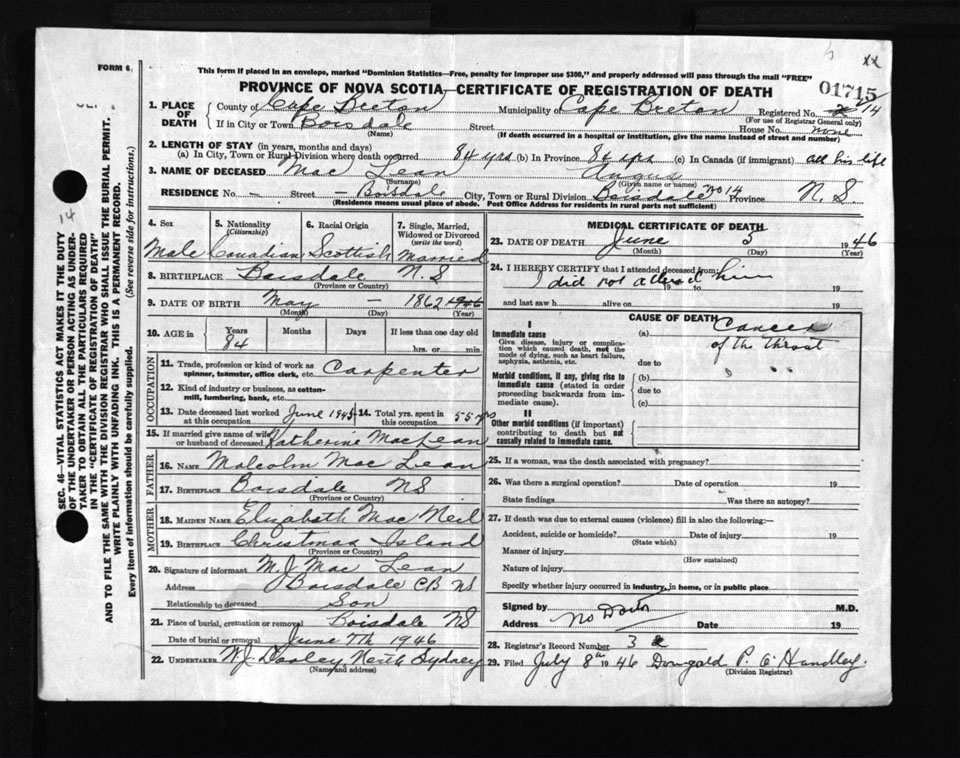 FORM 6.
xx
This form if placed in an envelope, marked "Dominion Statistics—Free, penalty for improper use $300," and properly addressed will pass through the mail "FREE"
PROVINCE OF NOVA SCOTIA—CERTIFICATE OF REGISTRATION OF DEATH
01715
1. PLACE OF DEATH
County of Cape Breton Municipality of Cape Breton Registered No. 14
(For use of Registrar General only)
If in City or Town Boisdale Street House No. none
(Name) (If death occurred in a hospital or institution, give the name instead of street and number)
2. LENGTH OF STAY (in years, months and days)
(a) In City, Town or Rural Division where death occurred 84 yrs (b) In Province 84 yrs (c) In Canada (if immigrant) all his life
3. NAME OF DECEASED Mac Lean Angus
(Surname) (Given name or names)
RESIDENCE No. — Street — Boisdale City, Town or Rural Division Boisdale no 14 Province N. S.
(Residence means usual place of abode. Post Office Address for residents in rural parts not sufficient)
SEC. 46—VITAL STATISTICS ACT MAKES IT THE DUTY
OF THE UNDERTAKER OR PERSON ACTING AS UNDER-
TAKER TO OBTAIN ALL THE PARTICULARS REQUIRED
IN THE "CERTIFICATE OF REGISTRATION OF DEATH"
AND TO FILE THE SAME WITH THE DIVISION REGISTRAR WHO SHALL ISSUE THE BURIAL PERMIT.
WRITE PLAINLY WITH UNFADING INK. THIS IS A PERMANENT RECORD.
Every item of information should be carefully supplied. (See reverse side for instructions.)
14
4. Sex 5. Nationality (Citizenship) 6. Racial Origin 7. Single, Married, Widowed or Divorced (write the word)
Male Canadian Scottish Married
8. BIRTHPLACE Boisdale N. S
(Province or Country)
9. DATE OF BIRTH May — 1862 1946
(Month) (Day) (Year)
10. AGE in Years Months Days If less than one day old
84 hrs. or min.
OCCUPATION
11. Trade, profession or kind of work as spinner, teamster, office clerk, etc. Carpenter
12. Kind of industry or business, as cotton-mill, lumbering, bank, etc.
13. Date deceased last worked at this occupation June 1945 14. Total yrs. spent in this occupation 55 yrs
15. If married give name of wife or husband of deceased Katherine MacLean
FATHER
16. NAME Malcolm Mac Lean
17. BIRTHPLACE Boisdale NS
(Province or Country)
MOTHER
18. MAIDEN NAME Elizabeth Mac Neil
19. BIRTHPLACE Christmas Island
(Province or Country)
20. Signature of informant M. J. Mac Lean
Address Boisdale CB NS
Relationship to deceased Son
21. Place of burial, cremation or removal Boisdale NS
Date of burial or removal June 7th 1946
22. UNDERTAKER W. J. Dooley North Sydney
(Name and address)
MEDICAL CERTIFICATE OF DEATH
23. DATE OF DEATH June 5 1946
(Month) (Day) (Year)
24. I HEREBY CERTIFY that I attended deceased from:
I did not attend him
19 to 19
and last saw h alive on 19
CAUSE OF DEATH
I
Immediate cause
Give disease, injury or complication which caused death, not the mode of dying, such as heart failure, asphyxia, asthenia, etc.
(a) Cancer
of the throat
due to
Morbid conditions, if any, giving rise to immediate cause (stated in order proceeding backwards from immediate cause).
(b)
due to
(c)
II
Other morbid conditions (if important) contributing to death but not causally related to immediate cause.
25. If a woman, was the death associated with pregnancy?
26. Was there a surgical operation? Date of operation 19
State findings Was there an autopsy?
27. If death was due to external causes (violence) fill in also the following:—
Accident, suicide or homicide? Date of injury 19
(State which)
Manner of injury
(How sustained)
Nature of injury
Specify whether injury occurred in industry, in home, or in public place
Signed by No Doctor M.D.
Address Date 19
28. Registrar's Record Number 3
29. Filed July 8th 1946 Dougald P. O'Handley
(Division Registrar)